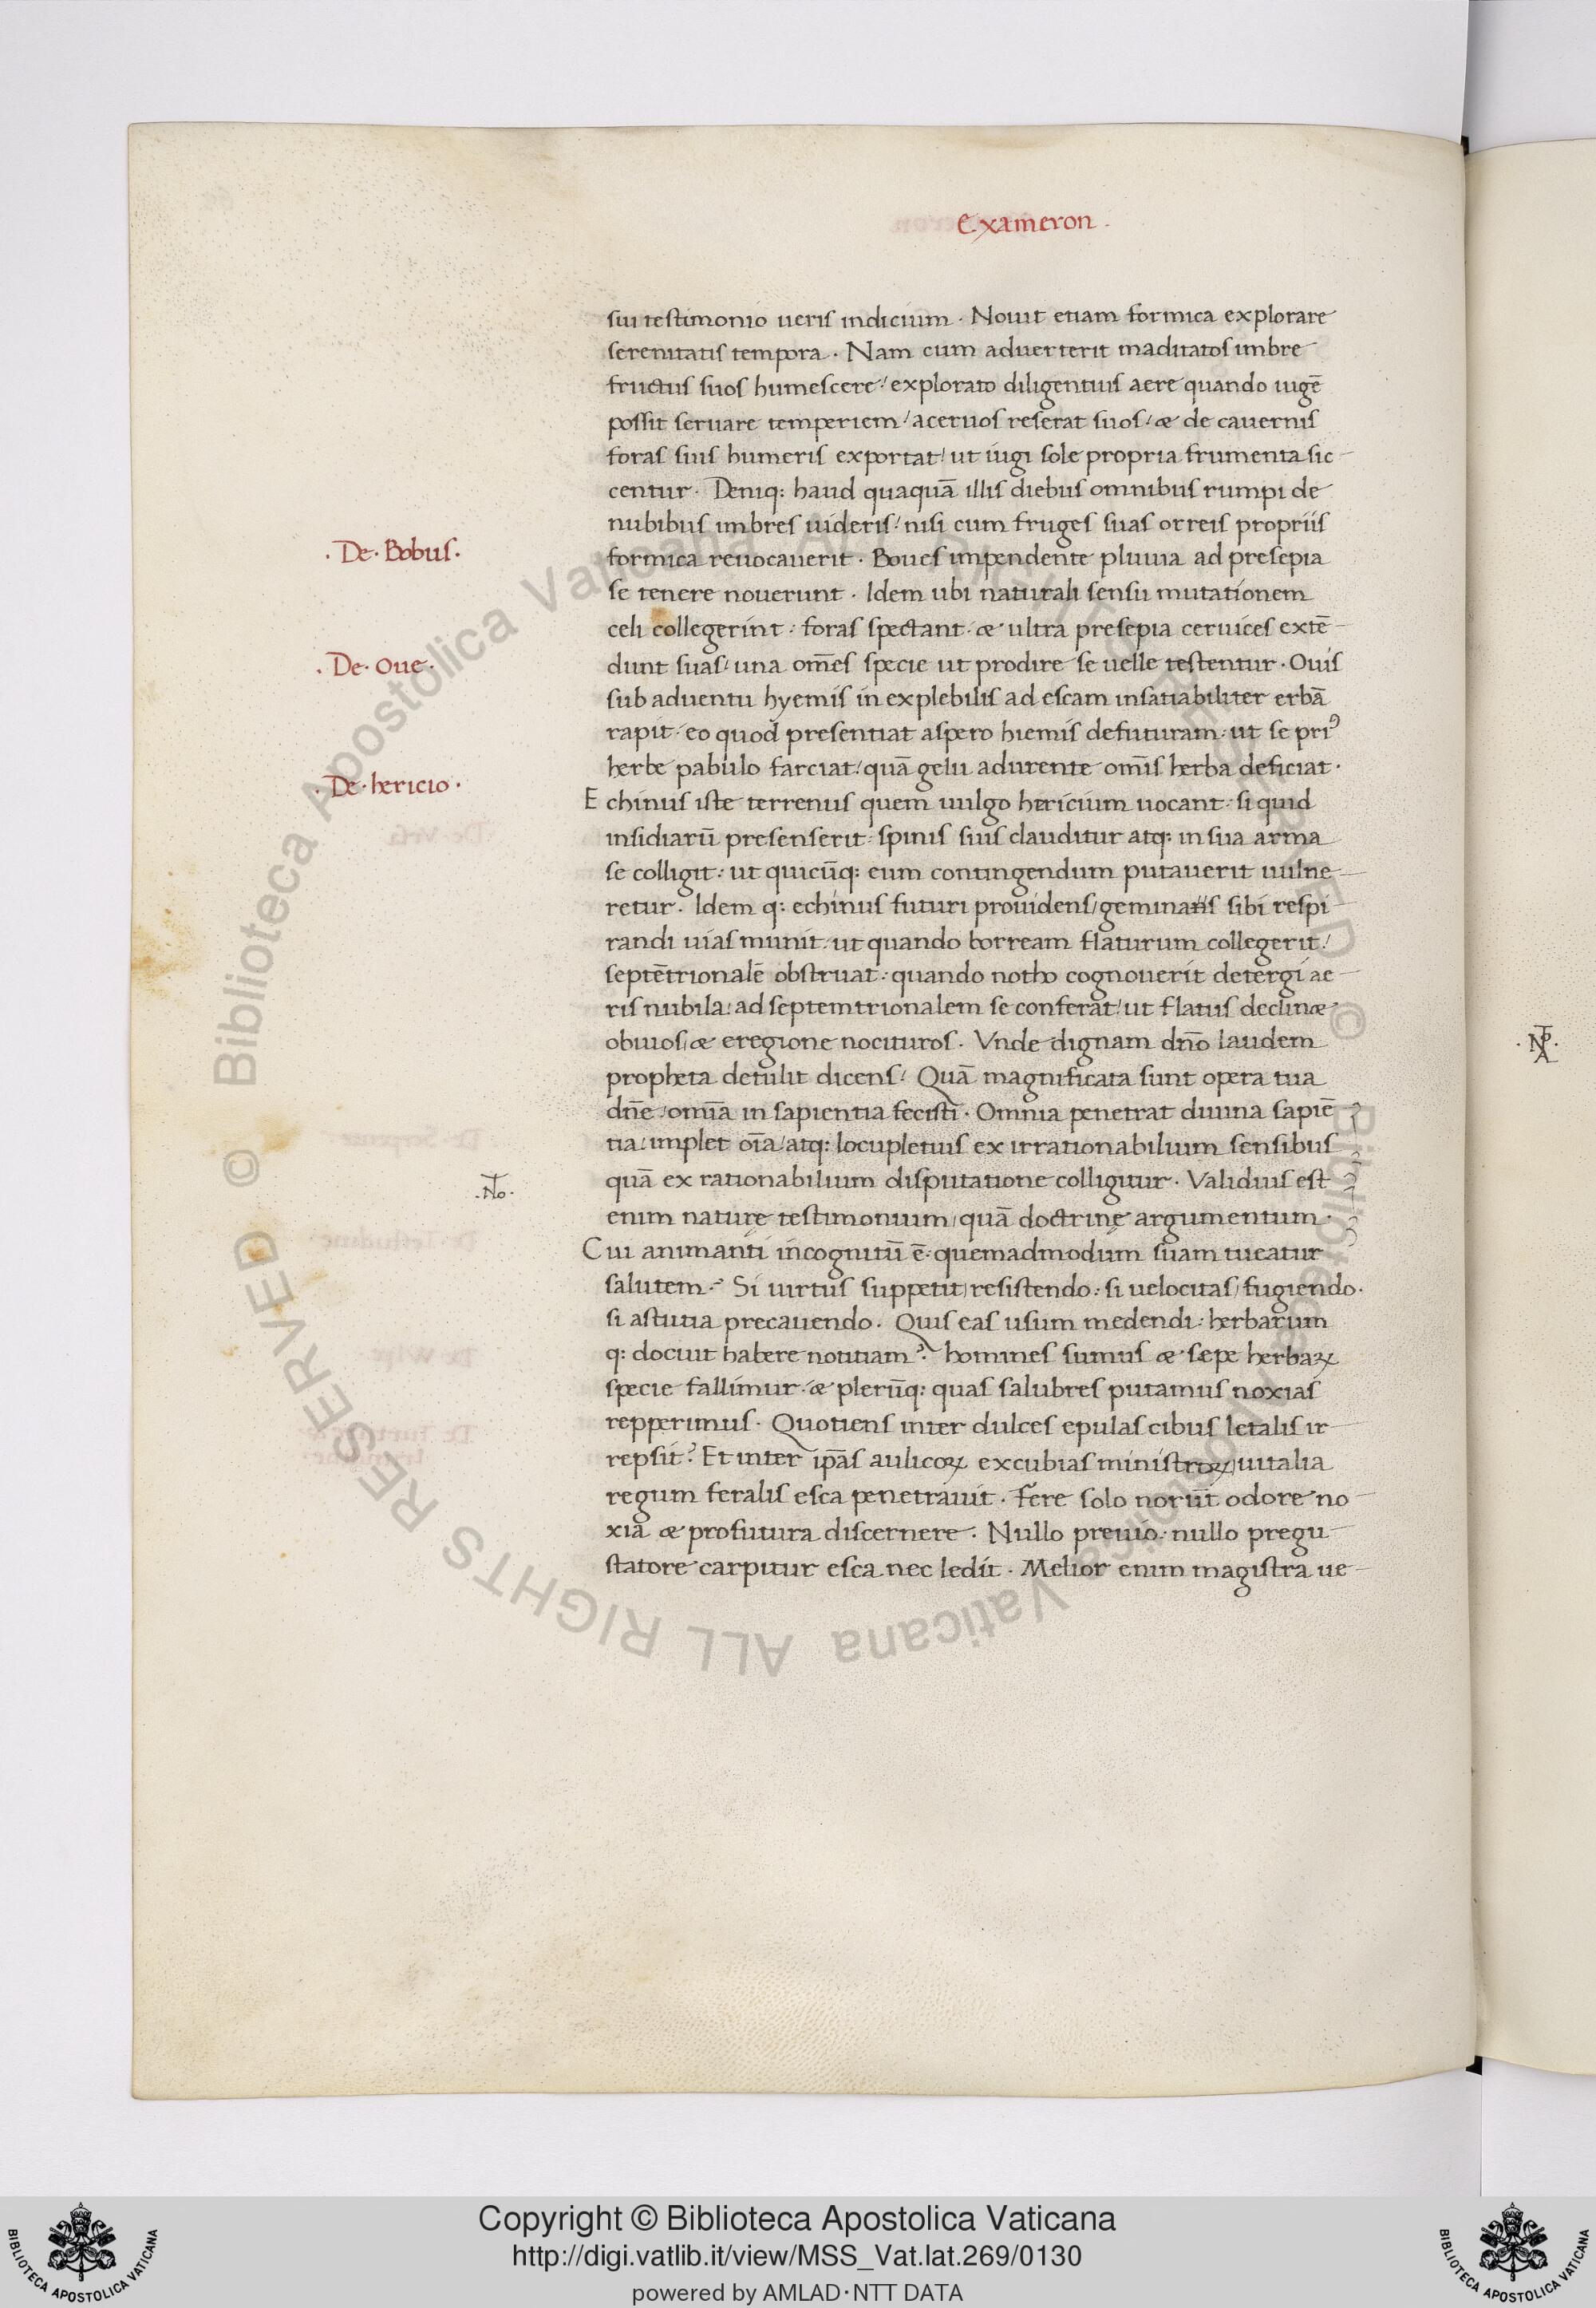 Exameron.
sui testimonio ueris indicium. Nouit etiam formica explorare
serenitatis tempora. Nam cum aduerterit maditatos imbre
fructus suos humescere: explorato diligentius aere quando iugē
possit seruare temperiem / aceruos reserat suos / & de cauernis
foras suis humeris exportat / ut iugi sole propria frumenta sic-
centur. Deniq: haud quaquā illis diebus omnibus rumpi de
nubibus imbres uideris / nisi cum fruges suas orreis propriis
· De · Bobus ·
formica reuocauerit. Boues impendente pluuia ad presepia
se tenere nouerunt. Idem ubi naturali sensu mutationem
celi collegerint: foras spectant: & ultra presepia ceruices extē-
· De · oue ·
dunt suas / una om̄es specie ut prodire se uelle testentur. Ouis
sub aduentu hyemis in explebilis ad escam insatiabiliter erbā
rapit: eo quod presentiat aspero hiemis defuturam: ut se pri⁹
herbe pabulo farciat / quā gelu adurente om̄is herba deficiat.
· De · hericio ·
Echinus iste terrenus quem uulgo hericium uocant: si quid
insidiarū presenserit: spinis suis clauditur atq: in sua arma
se colligit: ut quicūq: eum contingendum putauerit uulne-
retur. Idem q: echinus futuri prouidens / geminas sibi respi-
randi uias munit: ut quando borream flaturum collegerit /
septētrionalē obstruat: quando notho cognouerit detergi ae-
ris nubila: ad septemtrionalem se conferat / ut flatus declin&
obuios / & eregione nocituros. Vnde dignam dn̄o laudem
propheta detulit dicens / Quā magnificata sunt opera tua
dn̄e / omīa in sapientia fecisti. Omnia penetrat diuina sapiē
tia: implet oīa / atq: locupletius ex irrationabilium sensibus
· Nō ·
quā ex rationabilium disputatione colligitur. Validius est
enim naturę testimonium / quā doctrinę argumentum.
Cui animanti incognitū ē: quemadmodum suam tueatur
salutem? Si uirtus suppetit / resistendo: si uelocitas / fugiendo.
si astutia precauendo. Quis eas usum medendi: herbarum
q: docuit habere notitiam? homines sumus & sepe herbaꝝ
specie fallimur: & plerūq: quas salubres putamus noxias
repperimus. Quotiens inter dulces epulas cibus letalis ir-
repsit? Et inter ip̄as aulicoꝝ excubias ministroꝝ / uitalia
regum feralis esca penetrauit. Fere solo norūt odore no-
xia & profutura discernere. Nullo preuio: nullo pregu-
statore carpitur esca nec ledit. Melior enim magistra ue-
Copyright © Biblioteca Apostolica Vaticana
http://digi.vatlib.it/view/MSS_Vat.lat.269/0130
powered by AMLAD·NTT DATA
BIBLIOTECA APOSTOLICA VATICANA
BIBLIOTECA APOSTOLICA VATICANA
© Biblioteca Apostolica Vaticana ALL RIGHTS RESERVED © Biblioteca Apostolica Vaticana ALL RIGHTS RESERVED